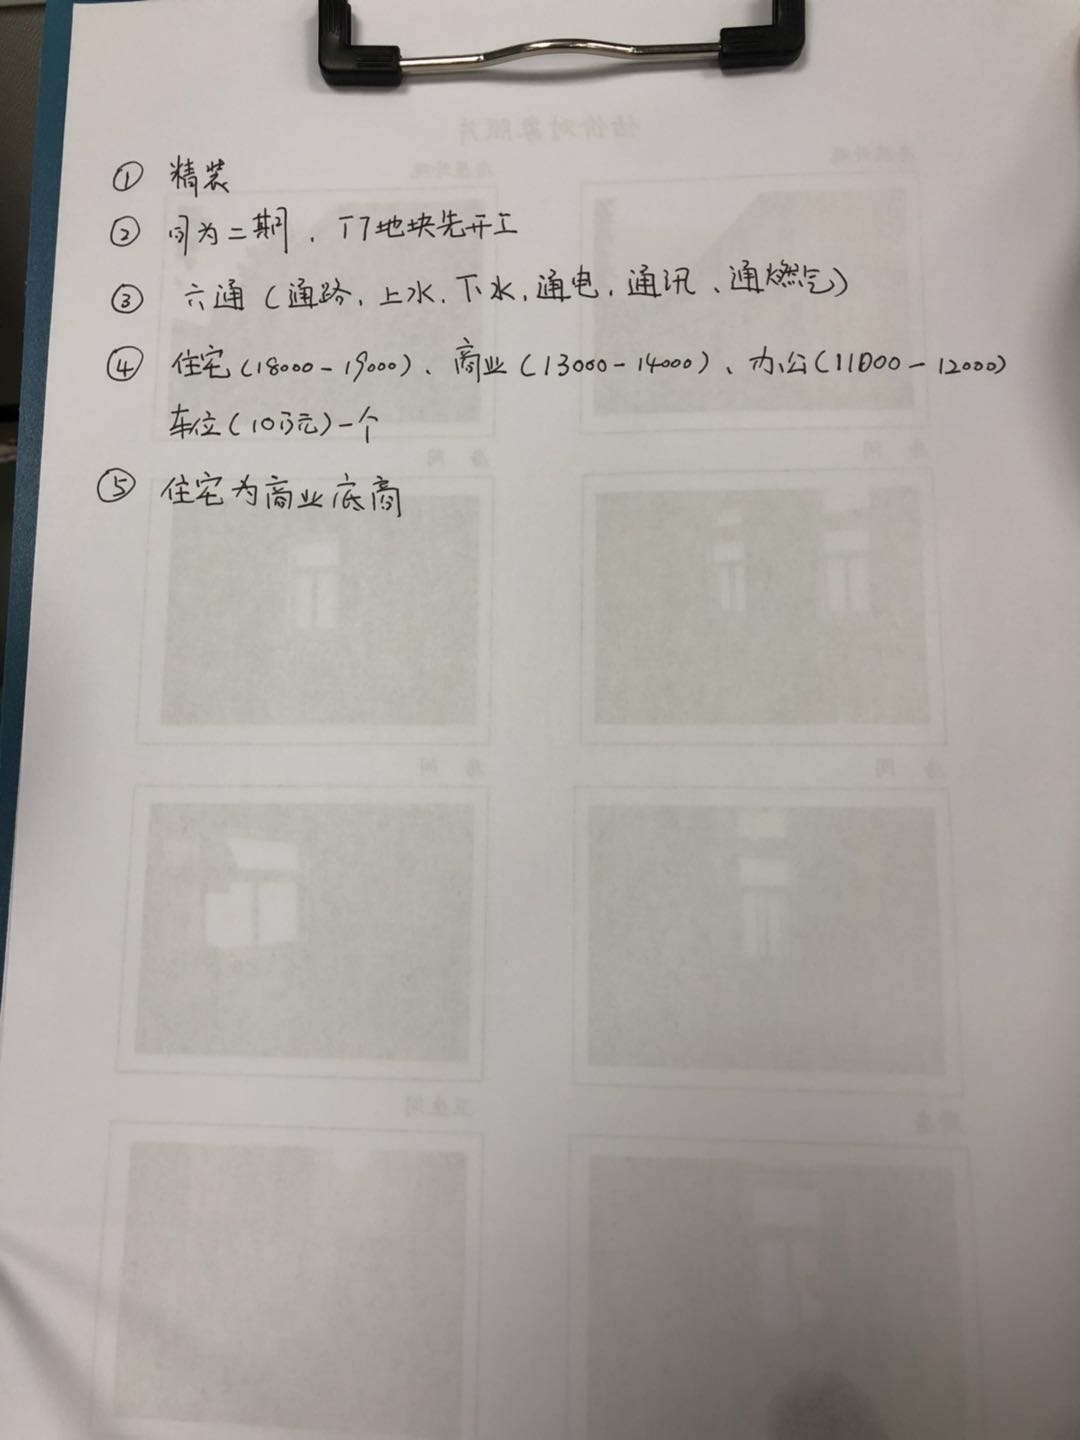 ① 精装
② 同为二期、T7地块先开工
③ 六通（通路、上水、下水、通电、通讯、通燃气）
④ 住宅（18000-19000）、商业（13000-14000）、办公（11000-12000）
车位（10万元）一个
⑤ 住宅为商业底商
估价对象照片